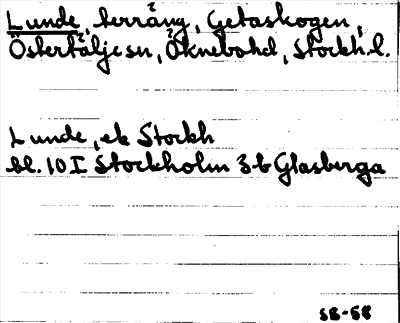 Lunde, terräng, Getaskogen,
Östertälje sn, Öknebo hd, Stockh. l.
Lunde, ek Stockh
bl. 10 I Stockholm 3 b Glasberga
SB-58